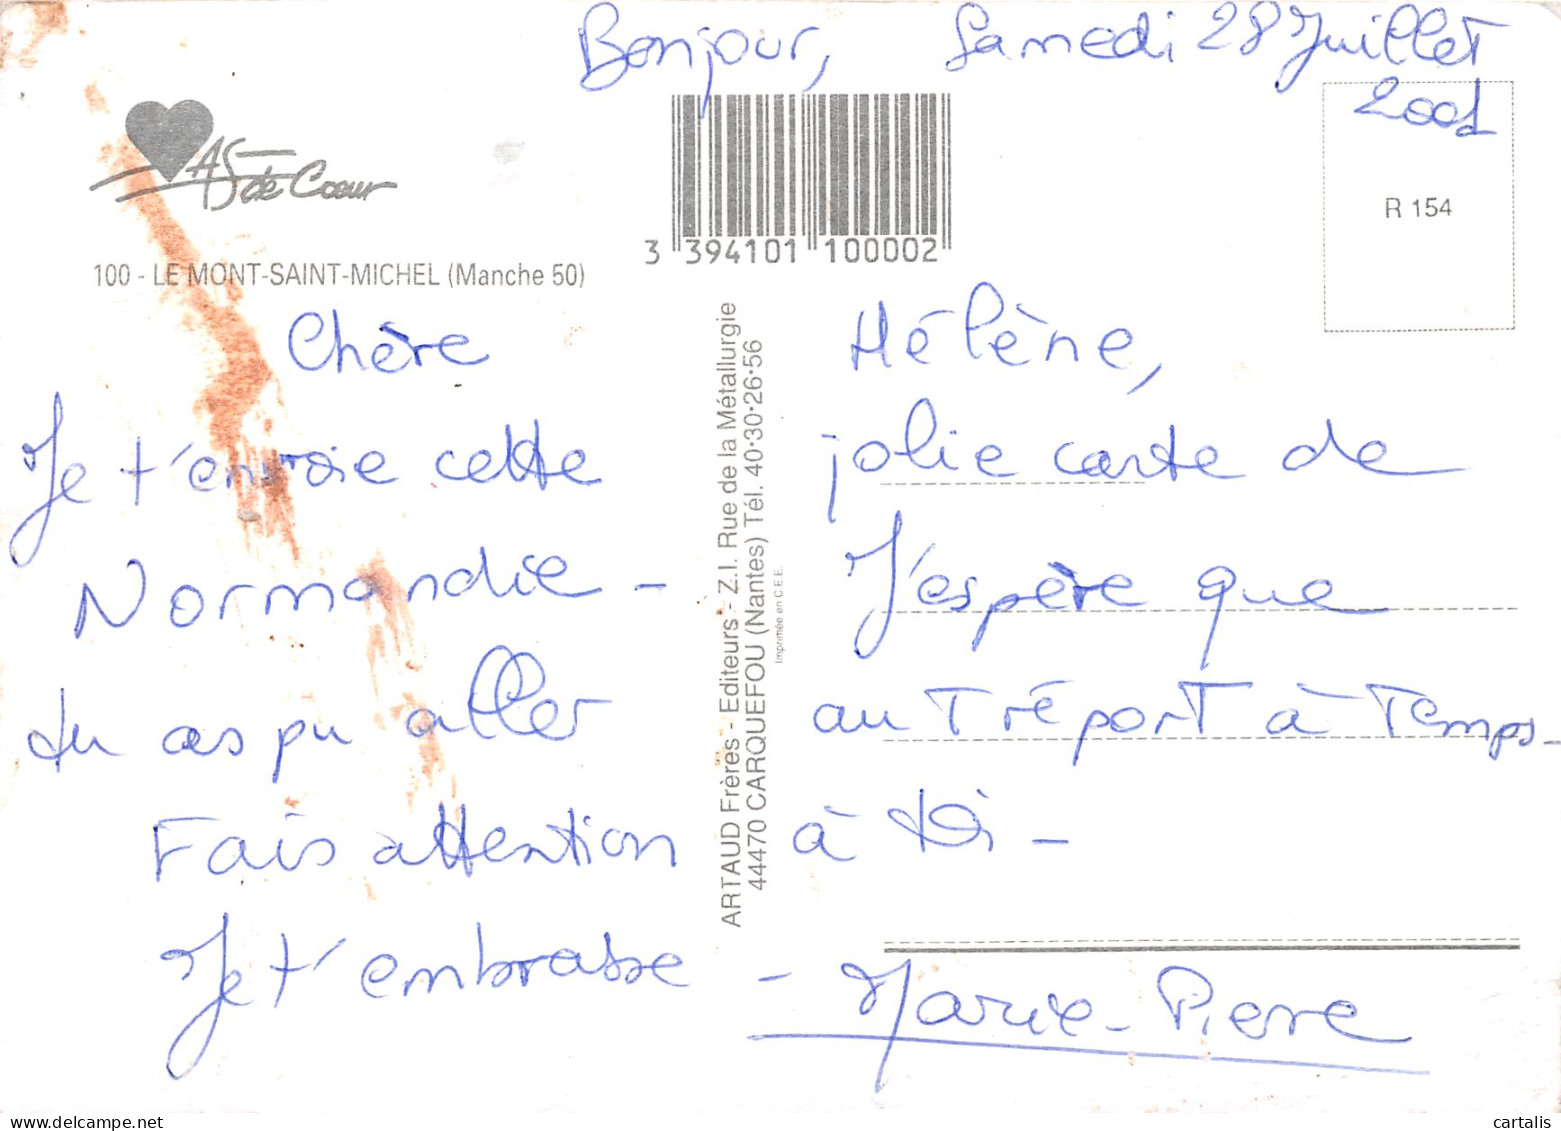 Bonjour, Samedi 28 Juillet
2001
AS de Coeur
R 154
3 394101 100002
100 - LE MONT-SAINT-MICHEL (Manche 50)
Chère Hélène,
Je t'envoie cette jolie carte de
Normandie - J'espère que
tu as pu aller au Tréport à Temps -
Fais attention à toi -
Je t'embrasse - Marie-Pierre
ARTAUD Frères - Editeurs - Z.I. Rue de la Métallurgie
44470 CARQUEFOU (Nantes) Tél. 40·30·26·56
Imprimée en C.E.E.
cartalis